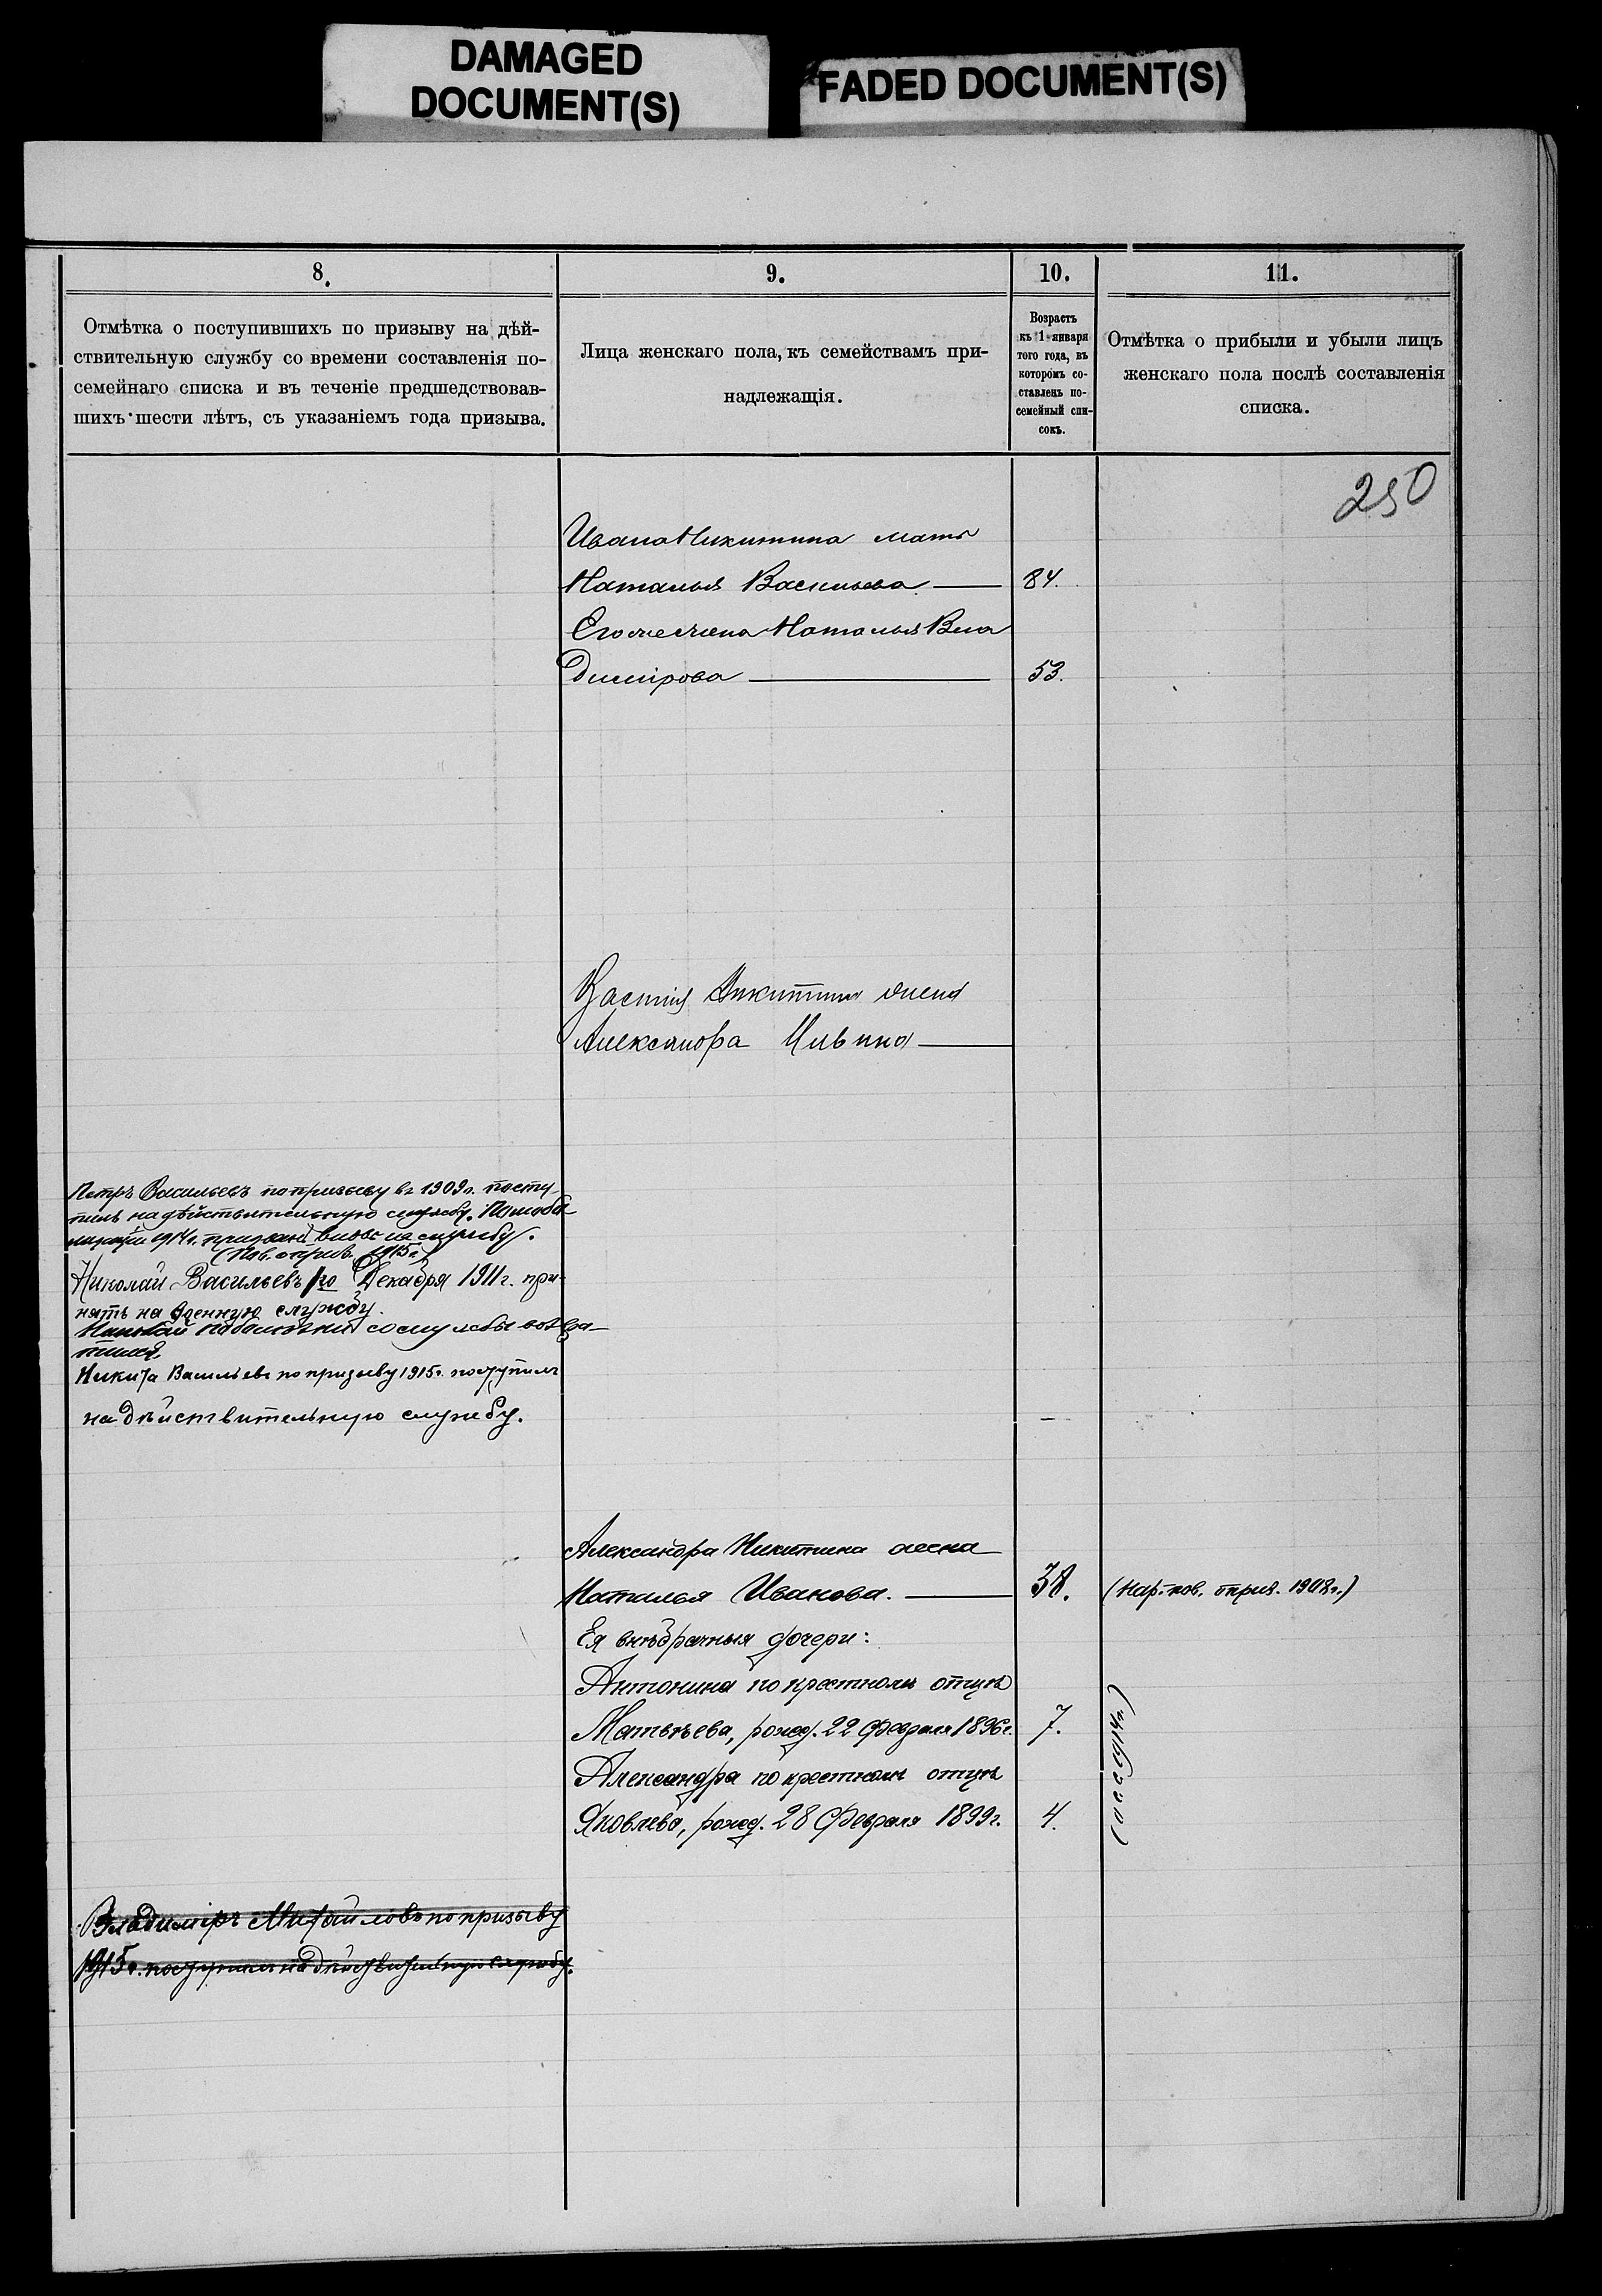 DAMAGED
DOCUMENT(S)
FADED DOCUMENT(S)
8.
Отмѣтка о поступившихъ по призыву на дѣй-
ствительную службу со времени составленія по-
семейнаго списка и въ теченіе предшедствовав-
шихъ шести лѣтъ, съ указаніемъ года призыва.
9.
Лица женскаго пола, къ семействамъ при-
надлежащія.
10.
Возрастъ
къ 1 января
того года, въ
которомъ со-
ставленъ по-
семейный спи-
сокъ.
11.
Отмѣтка о прибыли и убыли лицъ
женскаго пола послѣ составленія
списка.
250
Ивана Никитина мать
Наталья Васильева 84.
Его же жена Наталья Вла
димірова 53.
Василія Никитина жена
Александра Ильина
Петръ Васильевъ по призыву въ 1909 г. посту-
пилъ на дѣйствительную службу. По моби-
лизаціи 1914 г. призванъ вновь на службу.
1915 г.)
Николай Васильевъ 10 Декабря 1911 г. при-
нятъ на военную службу.
со службы возвра-
тился
Никита Васильевъ по призыву 1915 г. поступилъ
на дѣйствительную службу.
Александра Никитина жена
Наталья Иванова. 38. (Нар. нов. 1908 г.)
Ея внѣбрачныя дочери:
Антонина по крестному отцу
Матвѣева, рожд. 22 Февраля 1896 г. 7.
Александра по крестному отцу
Яковлева, рожд. 28 Февраля 1899 г. 4.
1914 г.)
Владиміръ Михайловъ по призыву
1915 г. поступилъ на дѣйствительную службу.